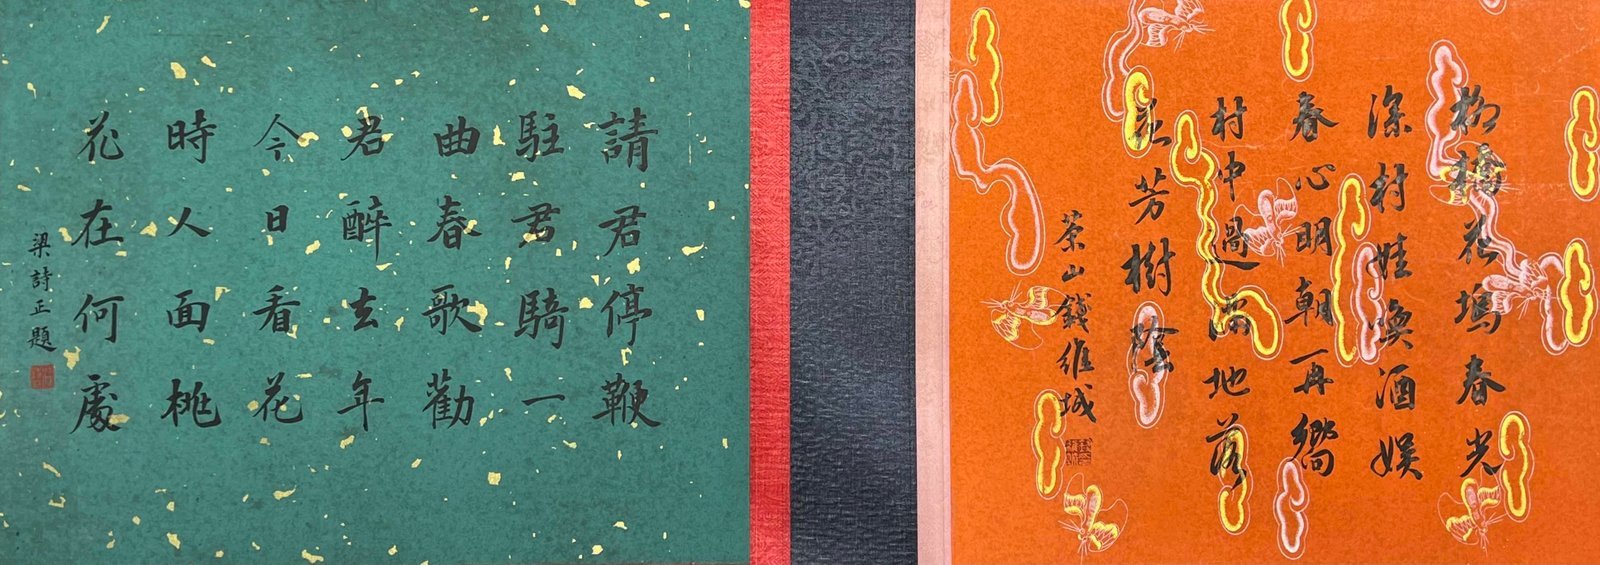 柳橋花塢春光
深村娃喚酒娛
春心明朝再嚮
村中過滿地落
花芳樹陰
茶山錢維城
請君停鞭
駐君騎一
曲春歌勸
君醉去年
今日看花
時人面桃
花在何處
梁詩正題